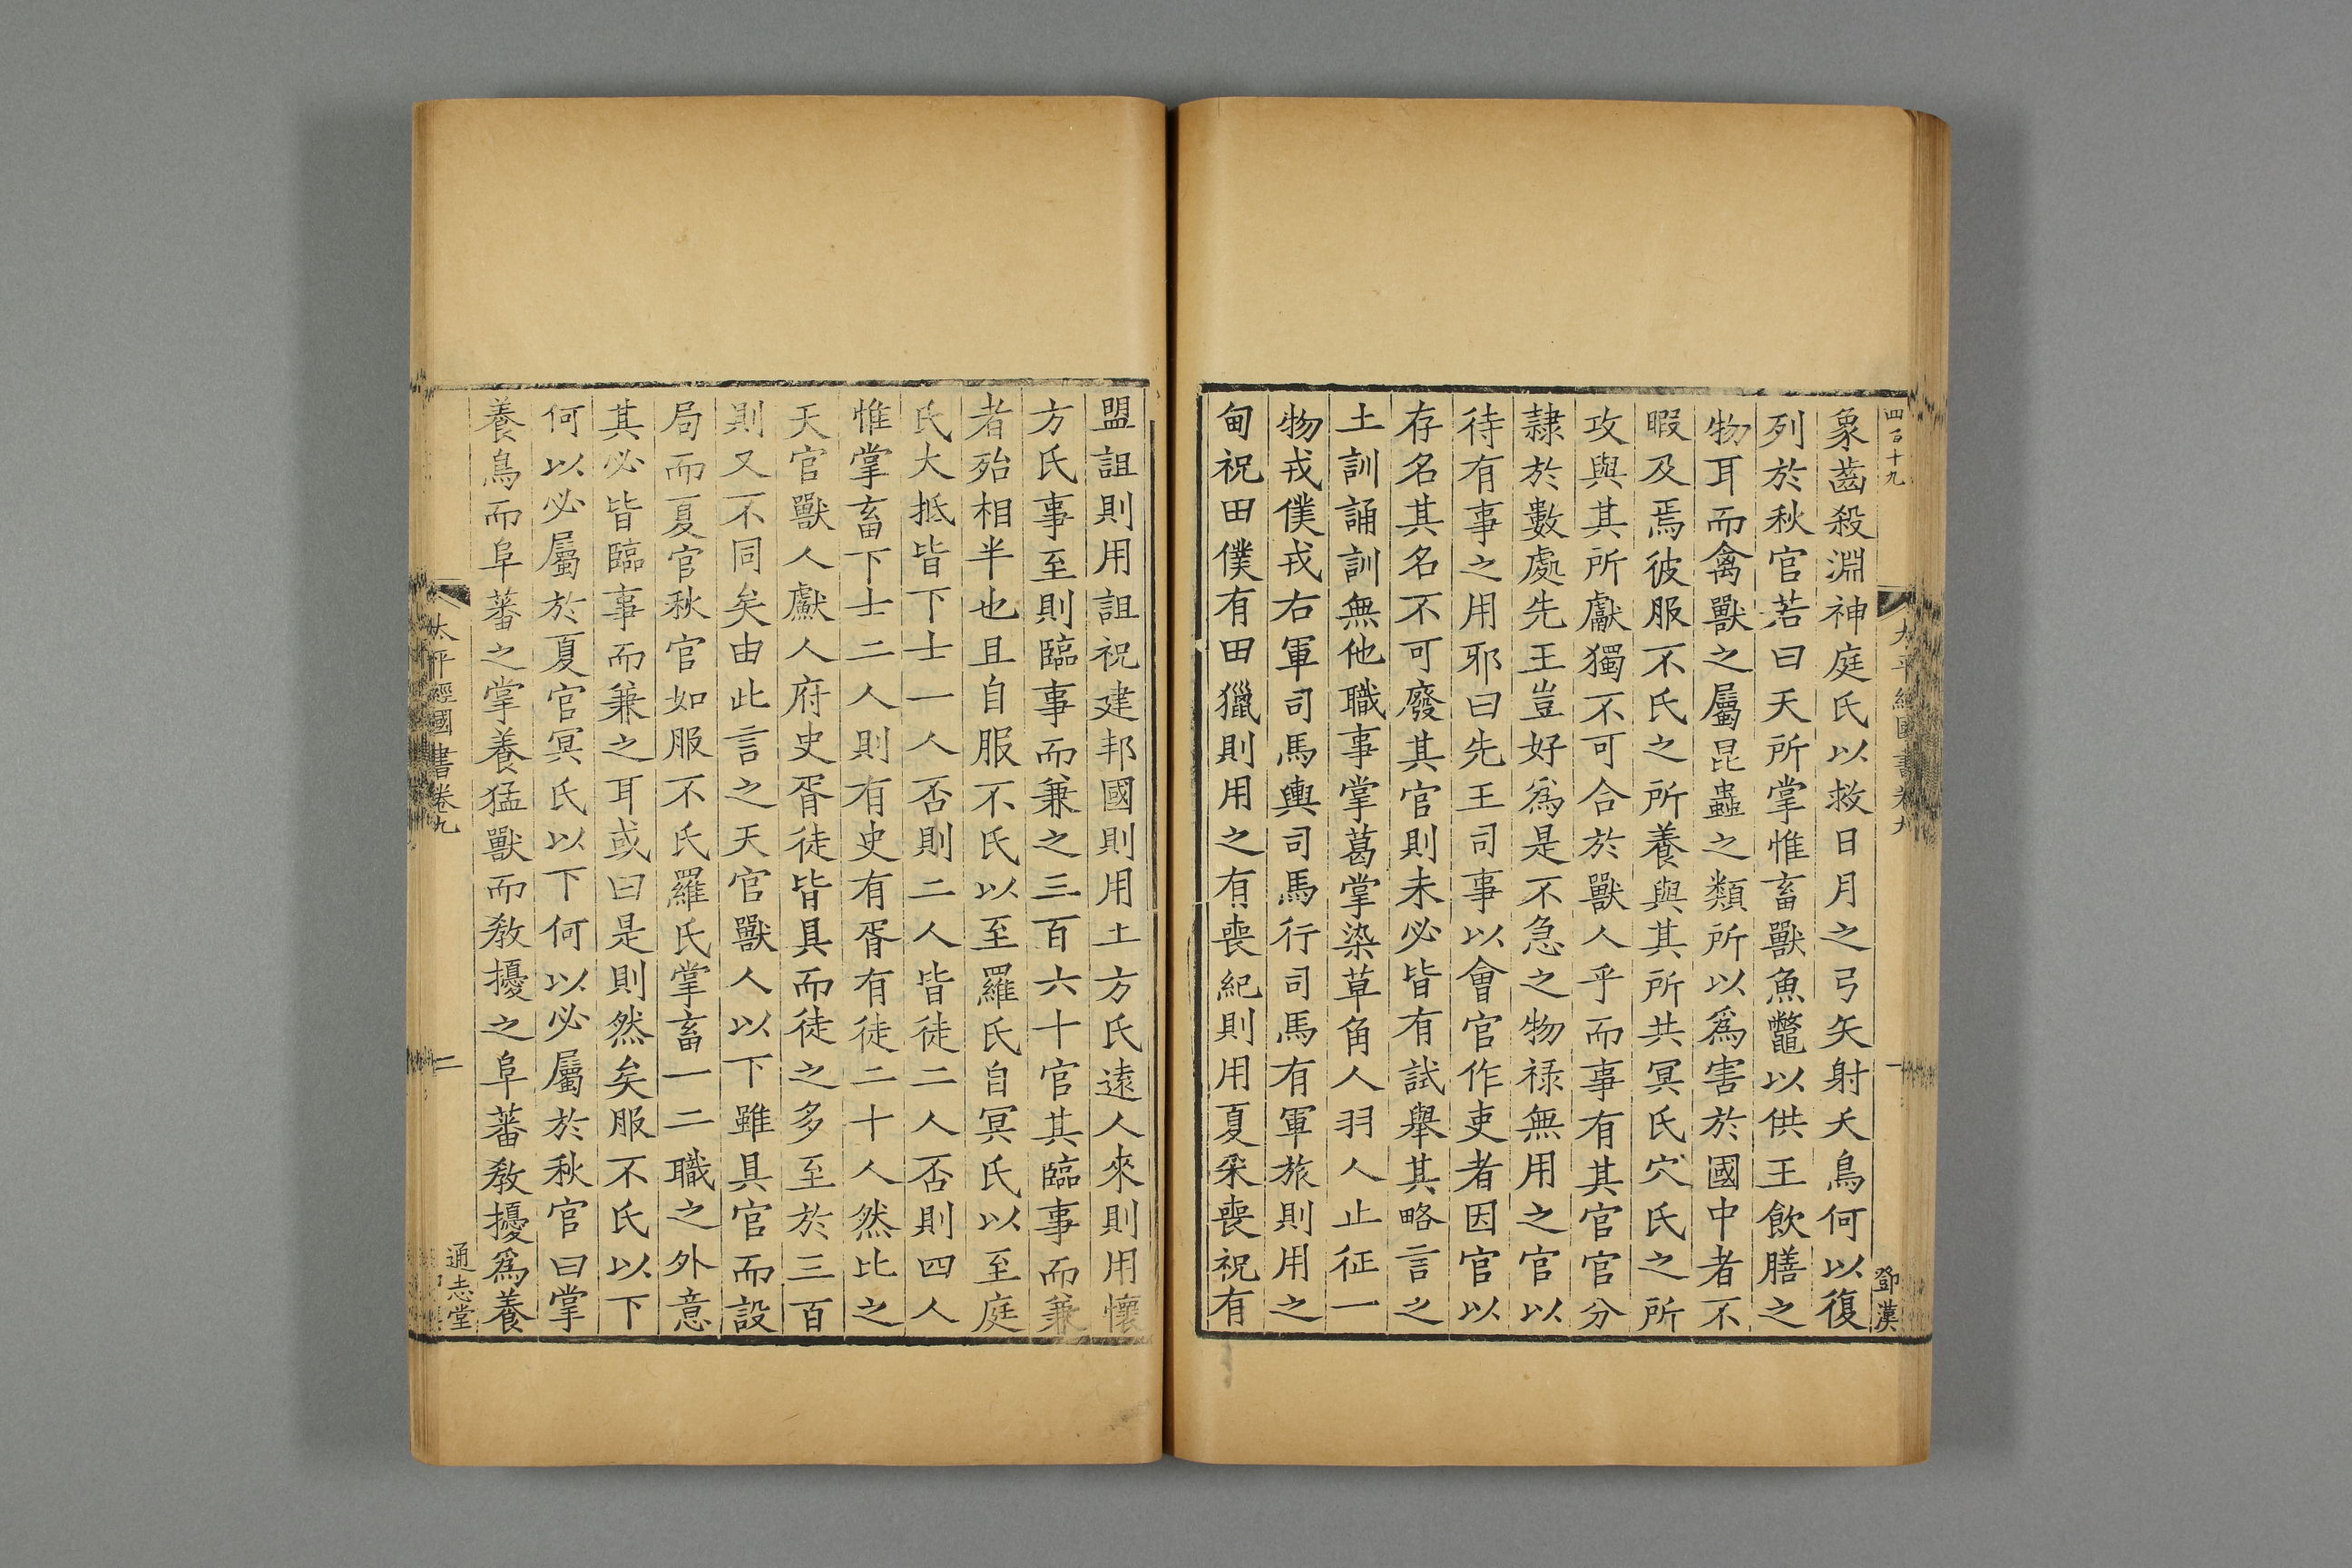 四百十九
太平經國書卷九
一
鄧漢
象齒殺淵神庭氏以救日月之弓矢射夭鳥何以復
列於秋官若曰天所掌惟畜獸魚鼈以供王飲膳之
物耳而禽獸之屬昆蟲之類所以爲害於國中者不
暇及焉彼服不氏之所養與其所共冥氏穴氏之所
攻與其所獻獨不可合於獸人乎而事有其官官分
隷於數處先王豈好爲是不急之物祿無用之官以
待有事之用邪曰先王司事以會官作吏者因官以
存名其名不可廢其官則未必皆有試舉其略言之
土訓誦訓無他職事掌葛掌染草角人羽人止征一
物戎僕戎右軍司馬輿司馬行司馬有軍旅則用之
甸祝田僕有田獵則用之有喪紀則用夏采喪祝有
盟詛則用詛祝建邦國則用土方氏遠人來則用懷
方氏事至則臨事而兼之三百六十官其臨事而兼
者殆相半也且自服不氏以至羅氏自冥氏以至庭
氏大抵皆下士一人否則二人皆徒二人否則四人
惟掌畜下士二人則有史有胥有徒二十人然比之
天官獸人䱷人府史胥徒皆具而徒之多至於三百
則又不同矣由此言之天官獸人以下雖具官而設
局而夏官秋官如服不氏羅氏掌畜一二職之外意
其必皆臨事而兼之耳或曰是則然矣服不氏以下
何以必屬於夏官冥氏以下何以必屬於秋官曰掌
養鳥而阜蕃之掌養猛獸而教擾之阜蕃教擾爲養
太平經國書卷九
二
通志堂